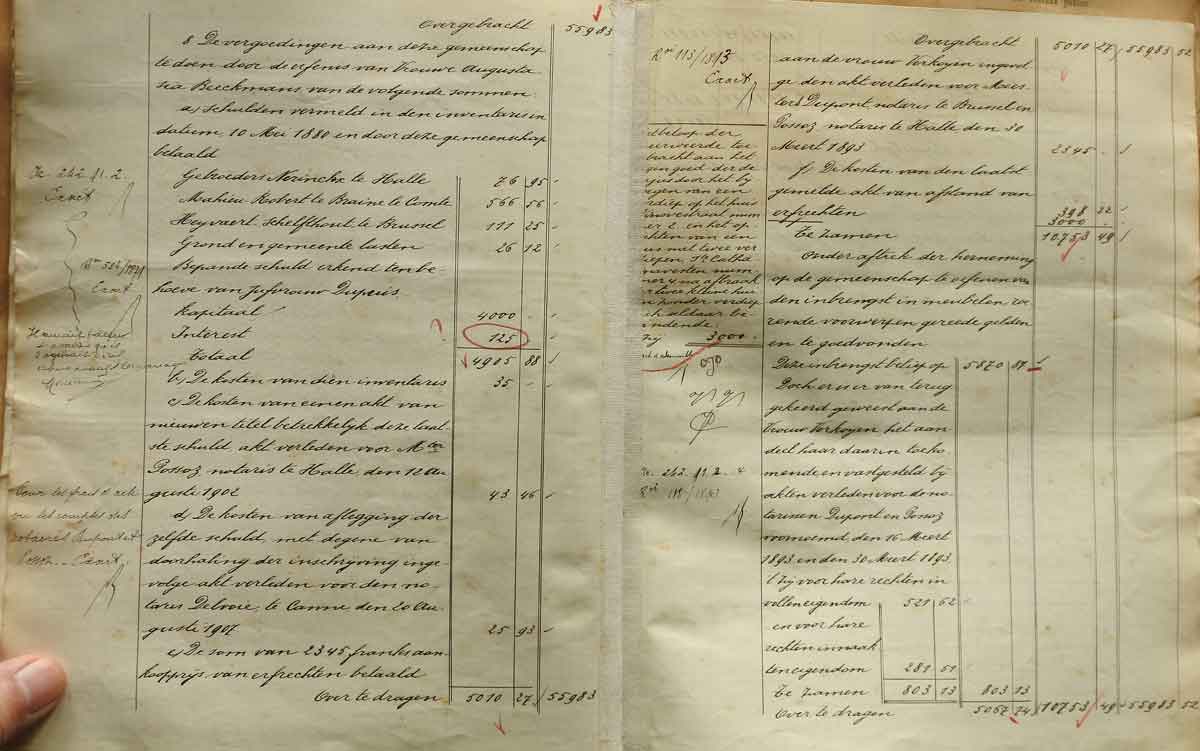 Overgebracht 55983
8 De vergoedingen aan deze gemeenschap
te doen door de erfenis van Vrouwe Augusta
Beeckmans van de volgende sommen:
a) schulden vermeld in den inventaris in
datum, 10 Mei 1880 en door deze gemeenschap
betaald
Gebroeders Nerincke te Halle 76 95
Mahieu Hobert te Braine te Comte 566 56
Heyvaert Schelfhout te Brussel 111 25
Grond en gemeente lasten 26 12
Bepande schuld erkend ten be-
hoeve van Jufvrouw Dupuis
Kapitaal 4000
Interest 125
Totaal 4905 88
b) De kosten van dien inventaris 35
c) De kosten van eenen akt van
nieuwen titel betrekkelijk deze laat-
ste schuld akt verleden voor
Possoz notaris te Halle, den 12 Au-
guste 1902 43 46
d) De kosten van aflegging der
zelfde schuld, met degene van
doorhaling der inschrijving inge-
volge akt verleden voor den no-
taris Delvoie, te Canne den 20 Au-
guste 1907 25 93
e) De som van 2345 franks aan-
koopprijs van erfrechten betaald
Over te dragen 5010 27 55983
Fe 242 fl. 2.
Exact
Exact
Exact
Overgebracht 5010 27 55983 52
aan de vrouw Verkoyen ingevol-
ge den akt verleden voor Mees-
ters Dupont, notaris te Brussel en
Possoz notaris te Halle den 30
Meert 1893 2345
f. De kosten van den laatst
gemelde akt van afstand van
erfrechten 398 22
3000
Te zamen 10753 49
Onder aftrek der herneming
op de gemeenschap te erfenen van
den inbrengst in meubelen
rende voorwerpen gereede gelden
en te goedvonden
Deze inbrengst beliep op 5870 87
Doch er is er van terug
gekeerd geweest aan de
Vrouw Verkoyen het aan-
deel haar daarin toeko-
mende en vastgesteld bij
akten verleden voor de no-
tarissen Dupont en Possoz
voornoemd, den 16 Meert
1893 en den 30 Meert 1893.
't zij voor hare rechten in
vollen eigendom 521 62
en voor hare
rechten in naak
ten eigendom 281 51
Te zamen 803 13 803 13
Over te dragen 5067 74 10753 49 55983 52
Rn 113/1893
Exact
3000
Fe 242 fl. 2